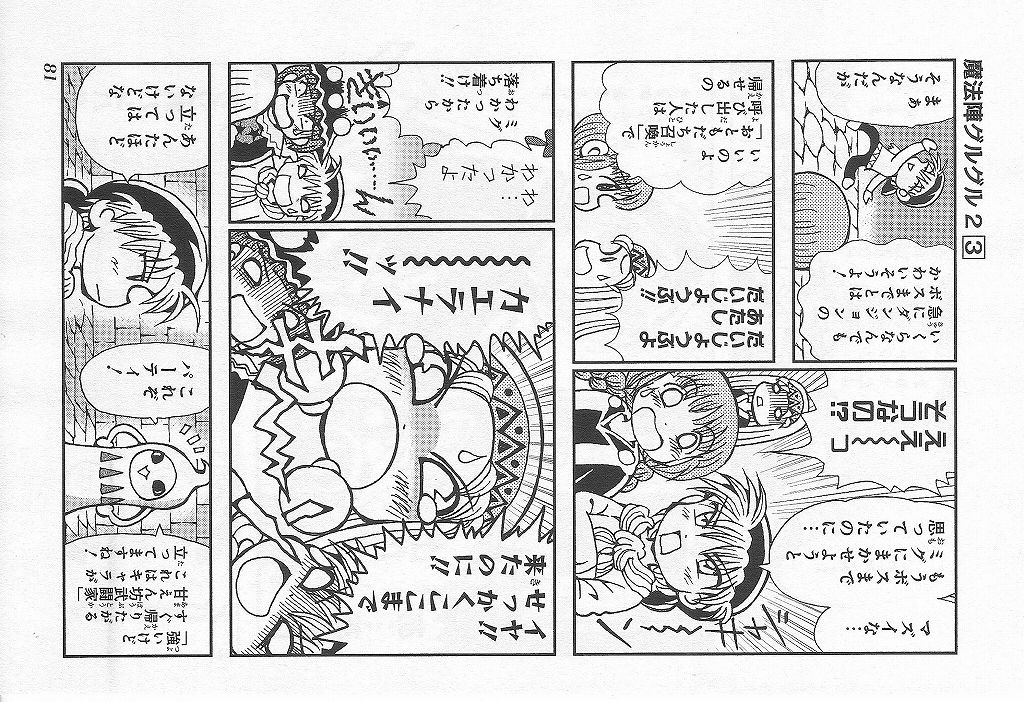 魔法陣グルグル2 3
マズイな…
もうボスまで
ミグにまかせようと
思っていたのに…
ええ〜〜っ
そうなの!?
いくらなんでも
急にダンジョンの
ボスまでとは
かわいそうよ!
まぁ
そうなんだが
だいじょうぶよ
あたし
だいじょうぶ!!
いいのよ
「おともだち召喚」で
呼び出した人は
帰せるの
イヤ!!
せっかくここまで
来たのに!!
カエラナイ
〜〜〜〜ッ!!
わ…
わかったよ
ミグ
わかったから
落ち着け!!
「強いけど
すぐ帰りたがる
甘えん坊武闘家」
これはキャラが
立ってますね!
これぞ
パーティ!
あんたほど
立っては
ないけどな
81